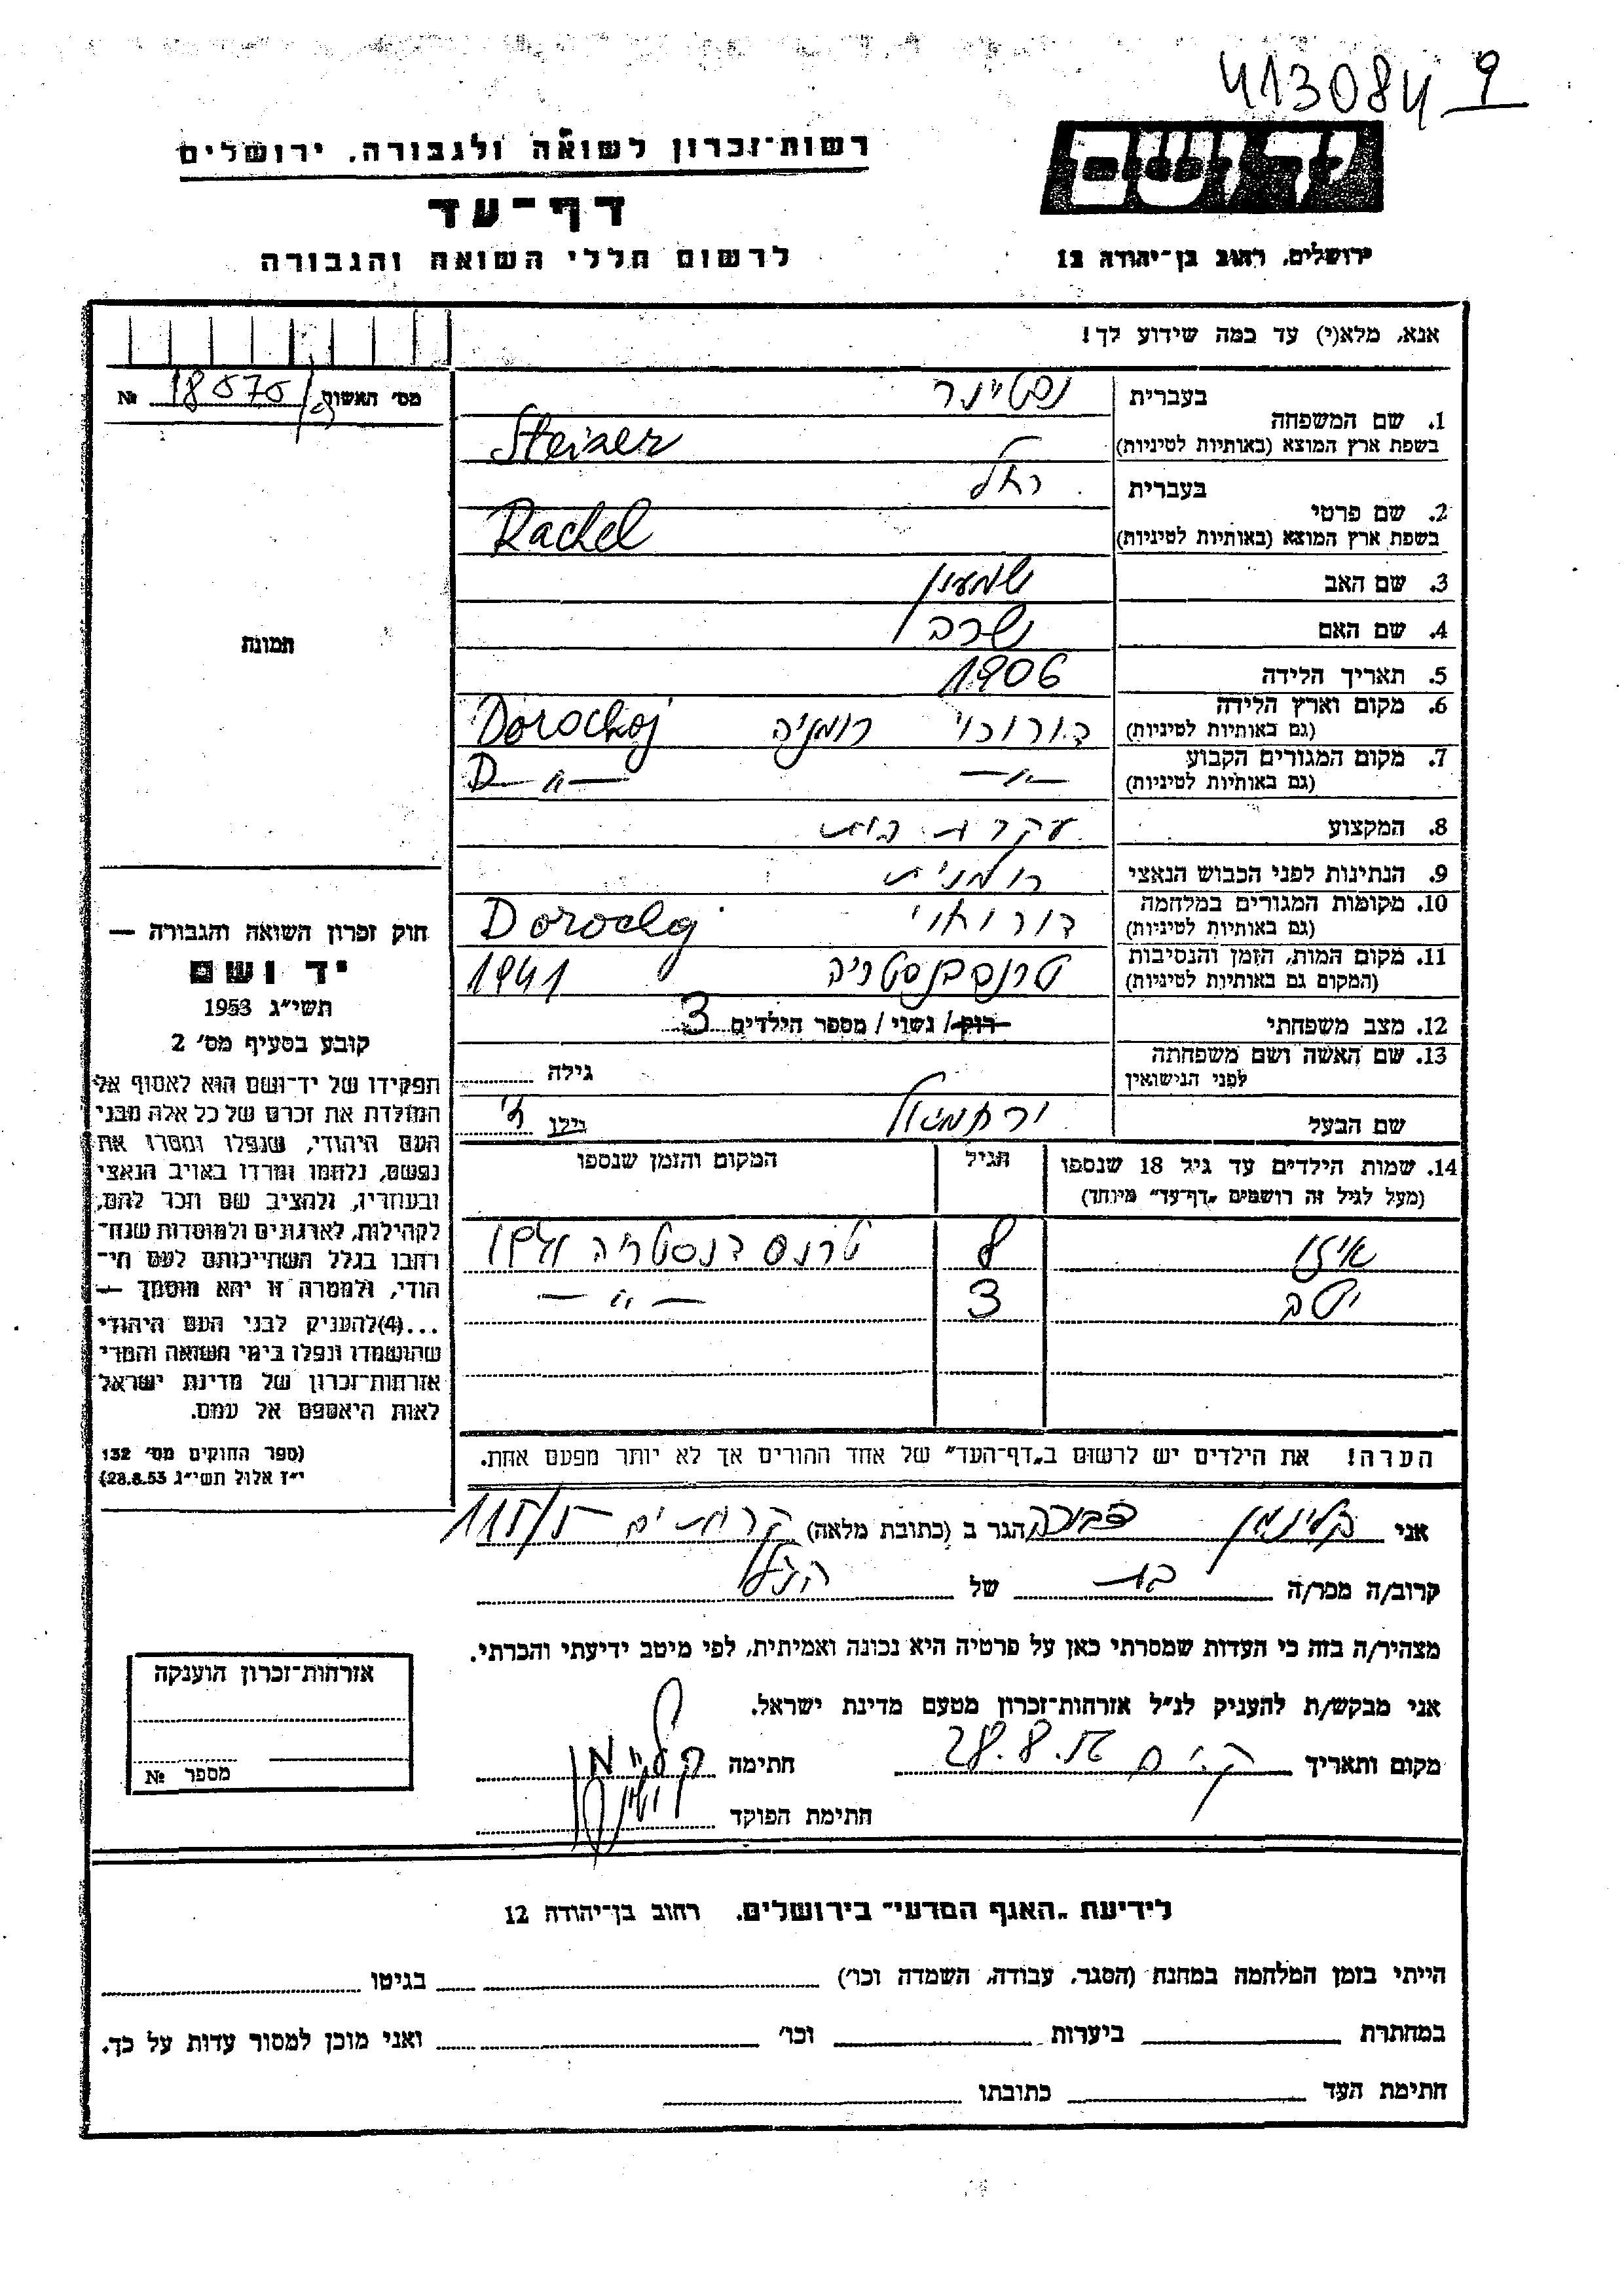 413084 9
רשות־זכרון לשואה ולגבורה, ירושלים
דף־עד
לרשום חללי השואה והגבורה
יד ושם
ירושלים, רחוב בן־יהודה 12
אנא, מלא(י) עד כמה שידוע לך!
מס' האשות 18575 №
1. שם המשפחה
בעברית שטיינר
בשפת ארץ המוצא (באותיות לטיניות) Steiner
2. שם פרטי
בעברית רחל
בשפת ארץ המוצא (באותיות לטיניות) Rachel
3. שם האב שמעון
4. שם האם שרה
5. תאריך הלידה 1906
6. מקום וארץ הלידה דורוכוי רומניה Dorochoj
(גם באותיות לטיניות)
7. מקום המגורים הקבוע —״— D —״—
(גם באותיות לטיניות)
8. המקצוע עקרת בית
9. הנתינות לפני הכבוש הנאצי רומנית
10. מקומות המגורים במלחמה דורוחוי Dorochoj
(גם באותיות לטיניות)
11. מקום המות, הזמן והנסיבות טרנסנסטריה 1941
(המקום גם באותיות לטיניות)
12. מצב משפחתי רוק / נשוי / מספר הילדים 3
13. שם האשה ושם משפחתה גילה
לפני הנישואין
שם הבעל ירחמיאל גילו
14. שמות הילדים עד גיל 18 שנספו הגיל המקום והזמן שנספו
(מעל לגיל זה רושמים „דף־עד״ מיוחד)
איזו 8 טרנס דנסטריה 1941
יטה 3 —״—
הערה! את הילדים יש לרשום ב„דף־העד״ של אחד ההורים אך לא יותר מפעם אחת.
תמונת
חוק זכרון השואה והגבורה —
יד ושם
תשי״ג 1953
קובע בסעיף מס' 2
תפקידו של יד־ושם הוא לאסוף אל
המולדת את זכרם של כל אלה מבני
העם היהודי, שנפלו ומסרו את
נפשם, נלחמו ומרדו באויב הנאצי
ובעוזריו, ולהציב שם וזכר להם,
לקהילות, לארגונים ולמוסדות שנח־
רבו בגלל השתייכותם לעם הי־
הודי, ולמטרה זו יהא מוסמך —
...(4)להעניק לבני העם היהודי
שהושמדו ונפלו בימי השואה והמרי
אזרחות־זכרון של מדינת ישראל
לאות היאספם אל עמם.
(ספר החוקים מס' 132
י״ז אלול תשי״ג 28.8.53)
אני קליינמן דבורה הגר ב (כתובת מלאה) קרית ים 115/5
קרוב/ה מכר/ה בת של הנ״ל
מצהיר/ה בזה כי העדות שמסרתי כאן על פרטיה היא נכונה ואמיתית, לפי מיטב ידיעתי והכרתי.
אני מבקש/ת להעניק לנ״ל אזרחות־זכרון מטעם מדינת ישראל.
מקום ותאריך ק. ים 28.8.56 חתימה
חתימת הפוקד
אזרחות־זכרון הוענקה
מספר №
לידיעת „האגף המדעי״ בירושלים, רחוב בן־יהודה 12
הייתי בזמן המלחמה במחנה (הסגר, עבודה, השמדה וכו') בגיטו
במחתרת ביערות וכו' ואני מוכן למסור עדות על כך.
חתימת העד כתובתו